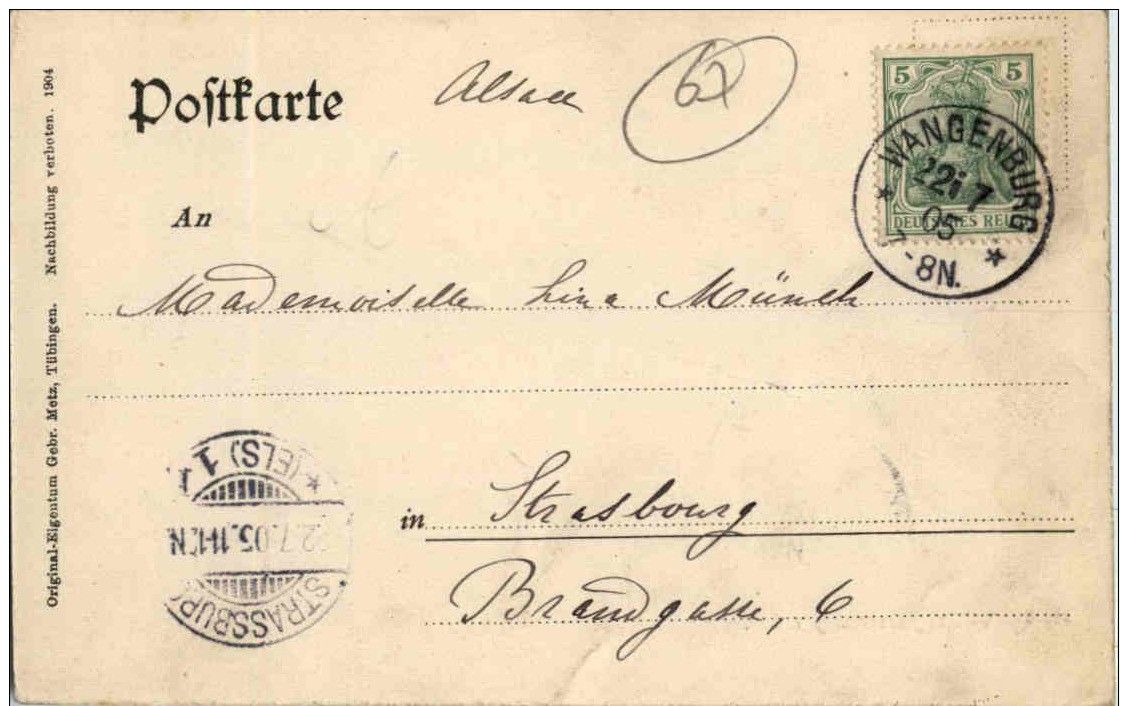 Postkarte
Alsace
5 5
DEUTSCHES REICH
* WANGENBURG *
22 7
05
7-8N.
An
Mademoiselle Lina Münch
in Strasbourg
Brandgasse, 6
STRASSBURG
22.7.05.11-12N
* (ELS) 1
Original-Eigentum Gebr. Metz, Tübingen. Nachbildung verboten. 1904